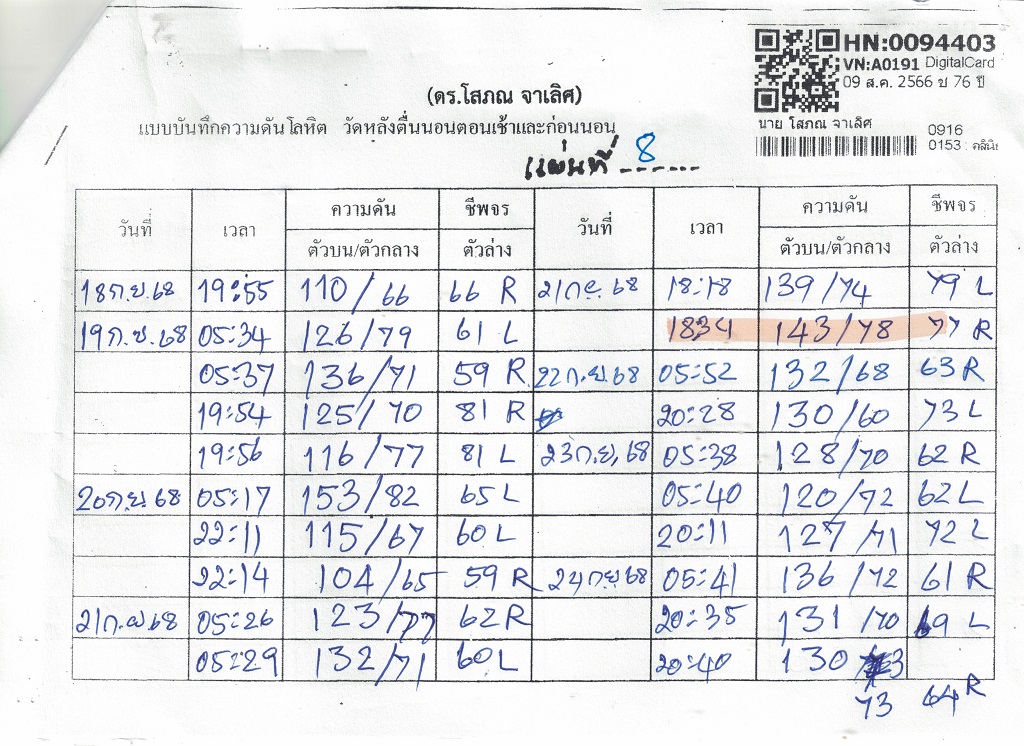 HN:0094403
VN:A0191 DigitalCard
09 ส.ค. 2566 ช 76 ปี
(ดร.โสภณ จาเลิศ)
นาย โสภณ จาเลิศ
แบบบันทึกความดันโลหิต วัดหลังตื่นนอนตอนเช้าและก่อนนอน
0916
0153 : คลินิ
แผ่นที่ 8
วันที่ เวลา ความดัน ชีพจร วันที่ เวลา ความดัน ชีพจร
ตัวบน/ตัวกลาง ตัวล่าง ตัวบน/ตัวกลาง ตัวล่าง
18 ก.ย. 68 19:55 110/66 66 R 21 ก.ย. 68 18:18 139/74 79 L
19 ก.ย. 68 05:34 126/79 61 L 1834 143/78 77 R
05:37 136/71 59 R 22 ก.ย. 68 05:52 132/68 63 R
19:54 125/70 81 R 20:28 130/60 73 L
19:56 116/77 81 L 23 ก.ย. 68 05:38 128/70 62 R
20 ก.ย. 68 05:17 153/82 65 L 05:40 120/72 62 L
22:11 115/67 60 L 20:11 127/71 72 L
22:14 104/65 59 R 24 ก.ย 68 05:41 136/72 61 R
21 ก.ย. 68 05:26 123/77 62 R 20:35 131/70 69 L
05:29 132/71 60 L 20:40 130
73 64 R